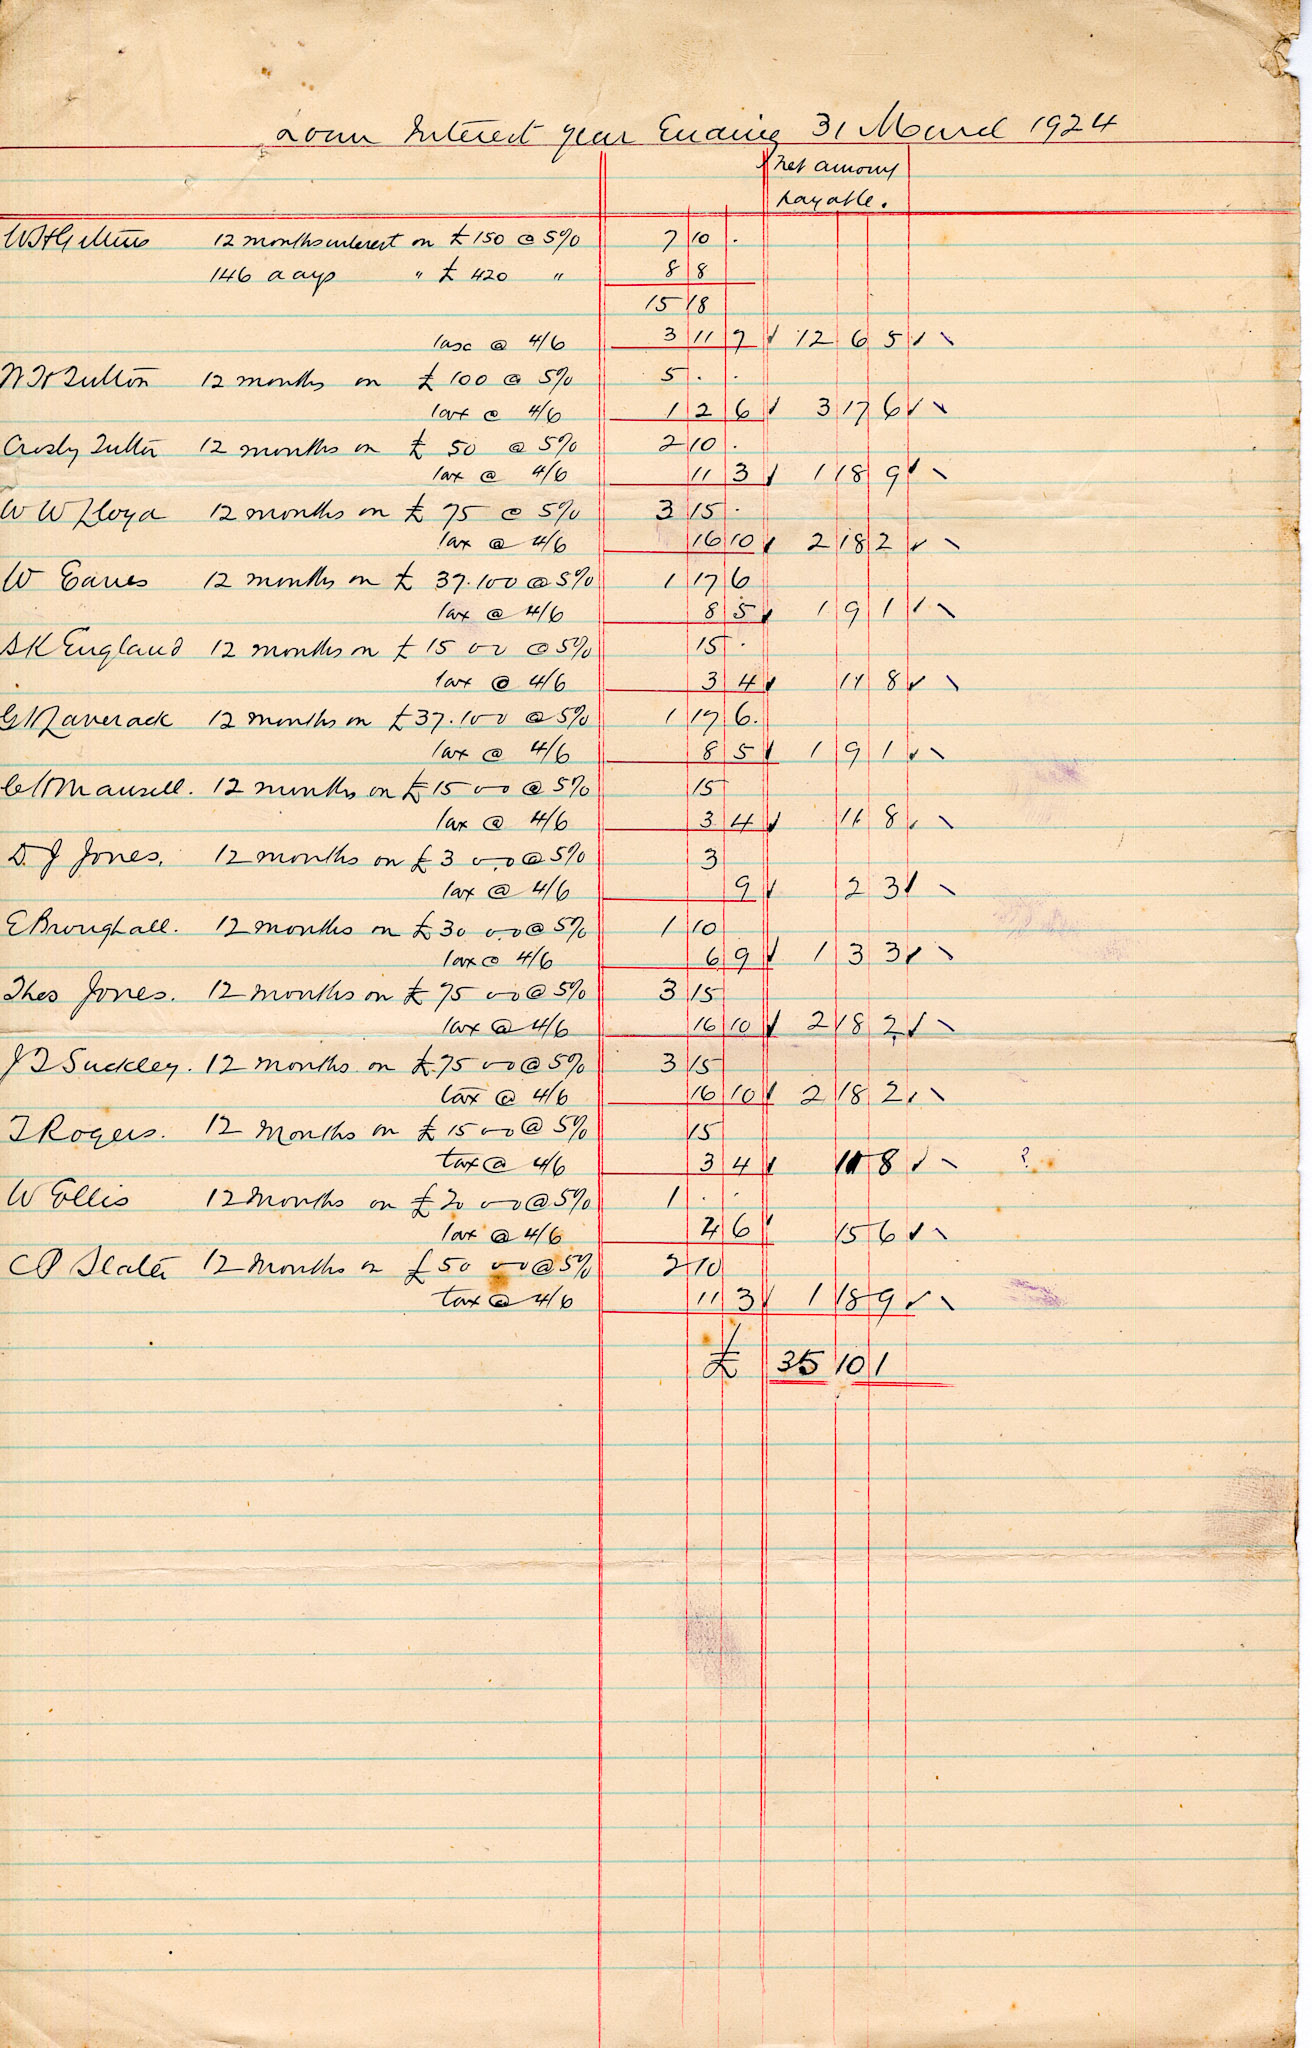 Loan Interest year Ending 31 March 1924
Net amount
payable.
W H Gittins 12 months interest on £150 @ 5% 7 10 .
146 days " £ 420 " 8 8
15 18
tax @ 4/6 3 11 7 12 6 5
12 months on £ 100 @ 5% 5 . .
tax @ 4/6 1 2 6 3 17 6
Crosby 12 months on £ 50 @ 5% 2 10 .
tax @ 4/6 11 3 1 18 9
W W Lloyd 12 months on £ 75 @ 5% 3 15 .
tax @ 4/6 16 10 2 18 2
W Eaves 12 months on £ 37.10.0 @ 5% 1 17 6
tax @ 4/6 8 5 1 9 1
England 12 months on £ 15 0 0 @ 5% 15 .
tax @ 4/6 3 4 11 8
Laverack 12 months on £37.10.0 @ 5% 1 17 6.
tax @ 4/6 8 5 1 9 1
Mansell. 12 months on £15 0 0 @ 5% 15
tax @ 4/6 3 4 11 8
D. J Jones. 12 months on £3 0.0 @ 5% 3
tax @ 4/6 9 2 3
E Broughall. 12 months on £30 0.0 @ 5% 1 10
tax @ 4/6 6 9 1 3 3
Thos Jones. 12 months on £ 75 0 0 @ 5% 3 15
tax @ 4/6 16 10 2 18 2
Suckley. 12 months on £.75 0 0 @ 5% 3 15
tax @ 4/6 16 10 2 18 2
T Rogers. 12 Months on £ 15 0 0 @ 5% 15
tax @ 4/6 3 4 11 8 ?
W Ellis 12 Months on £ 20 0 0 @ 5% 1 . .
tax @ 4/6 4 6 15 6
C P Slater 12 Months on £50 0 0 @ 5% 2 10
tax @ 4/6 11 3 1 18 9
£ 35 10 1